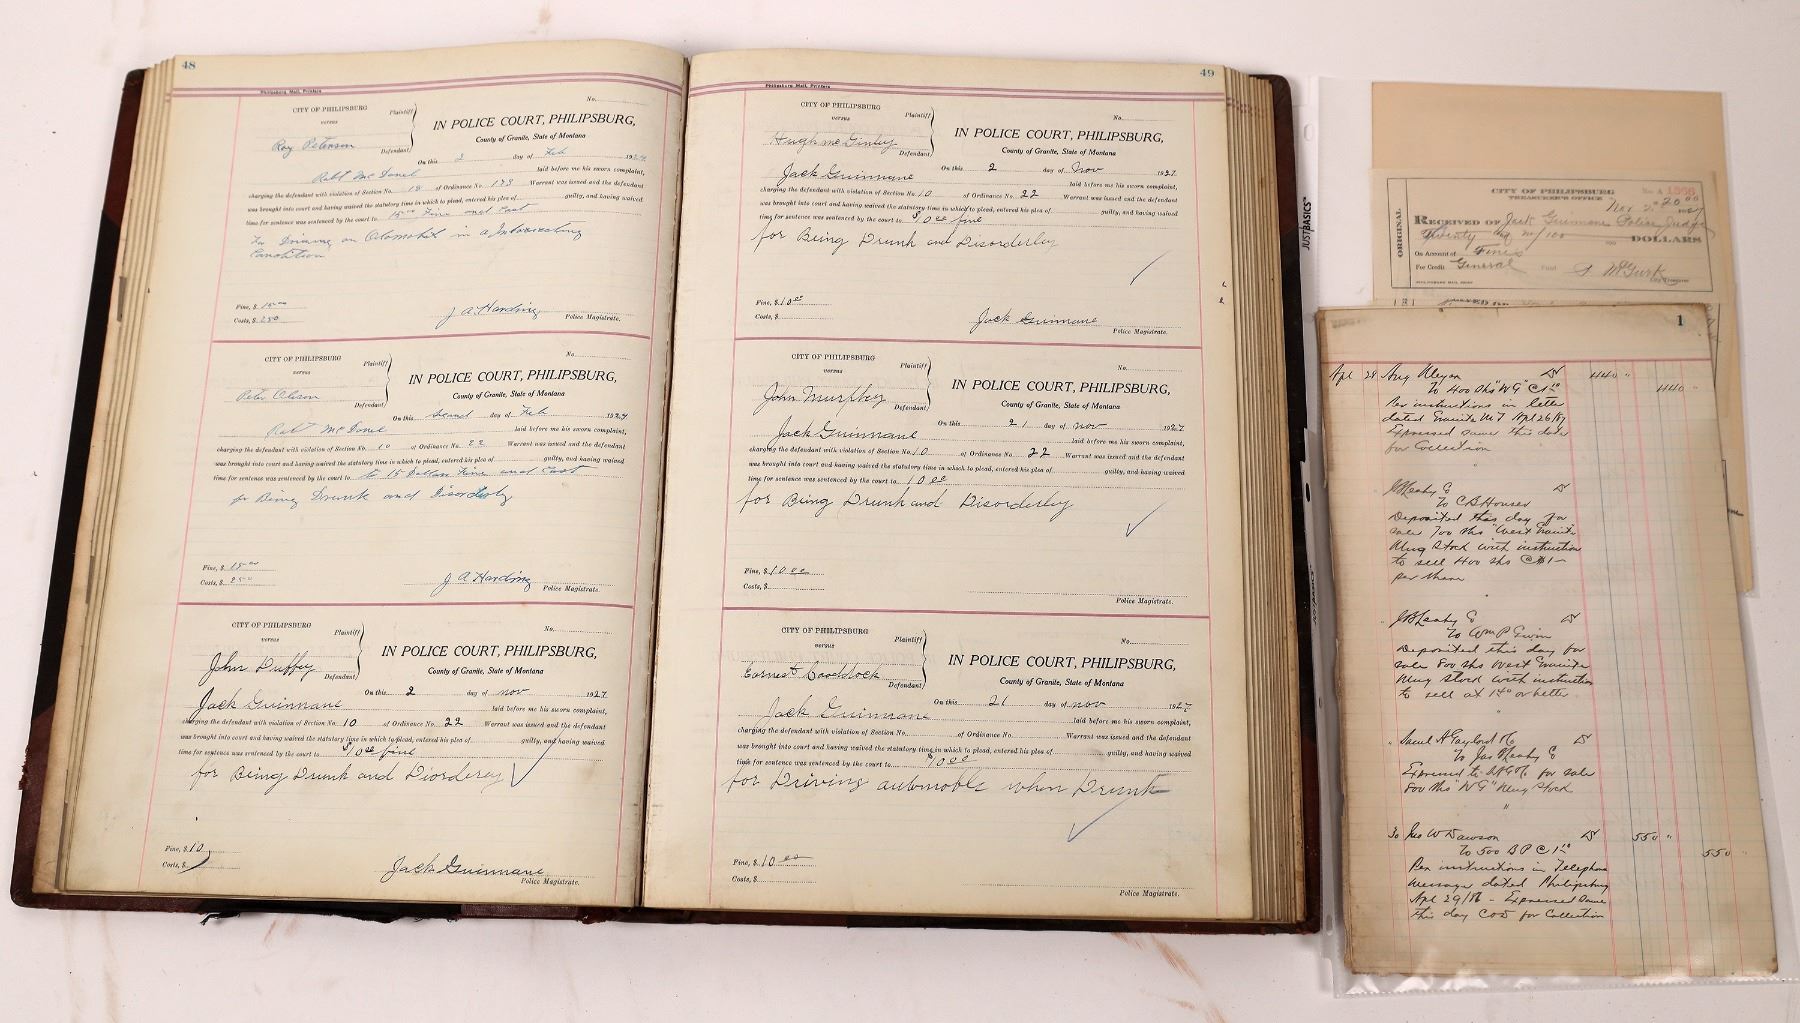 48
Philipsburg Mail, Printers
No.
CITY OF PHILIPSBURG
versus
Plaintiff
Roy Peterson
Defendant
IN POLICE COURT, PHILIPSBURG,
County of Granite, State of Montana
On this 2 day of Feb 1924
Robt McDonel laid before me his sworn complaint,
charging the defendant with violation of Section No. 18 of Ordinance No. Warrant was issued and the defendant
was brought into court and having waived the statutory time in which to plead, entered his plea of guilty, and having waived
time for sentence was sentenced by the court to 15.00 Fine and Cost
for Driving an in a Intoxicating
Condition
Fine, $ 15.00
Costs, $ 2.50
J A Harding
Police Magistrate.
No.
CITY OF PHILIPSBURG
versus
Plaintiff
Peter Olson
Defendant
IN POLICE COURT, PHILIPSBURG,
County of Granite, State of Montana
On this day of Feb 1924
Robt McDonel laid before me his sworn complaint,
charging the defendant with violation of Section No. 10 of Ordinance No. 22 Warrant was issued and the defendant
was brought into court and having waived the statutory time in which to plead, entered his plea of guilty, and having waived
time for sentence was sentenced by the court to to 15 Dollars Fine and Cost
for Being Drunk and Disorderly
Fine, $ 15.00
Costs, $ 2.50
J A Harding
Police Magistrate.
No.
CITY OF PHILIPSBURG
versus
Plaintiff
John Duffey
Defendant
IN POLICE COURT, PHILIPSBURG,
County of Granite, State of Montana
On this 2 day of nov 1927
Jack Guinnane laid before me his sworn complaint,
charging the defendant with violation of Section No. 10 of Ordinance No. 22 Warrant was issued and the defendant
was brought into court and having waived the statutory time in which to plead, entered his plea of guilty, and having waived
time for sentence was sentenced by the court to $10.00 fine
for Being Drunk and Diorderey
Fine, $ 10
Costs, $
Jack Guinnane
Police Magistrate.
49
Philipsburg Mail, Printers
No.
CITY OF PHILIPSBURG
versus
Plaintiff
Hugh McGinley
Defendant
IN POLICE COURT, PHILIPSBURG,
County of Granite, State of Montana
On this 2 day of Nov 1927
Jack Guinnane laid before me his sworn complaint,
charging the defendant with violation of Section No. 10 of Ordinance No. 22 Warrant was issued and the defendant
was brought into court and having waived the statutory time in which to plead, entered his plea of guilty, and having waived
time for sentence was sentenced by the court to $10.00 fine
for Being Drunk and Disorderley
Fine, $ 10.00
Costs, $
Jack Guinnane
Police Magistrate.
No.
CITY OF PHILIPSBURG
versus
Plaintiff
John Murphey
Defendant
IN POLICE COURT, PHILIPSBURG,
County of Granite, State of Montana
On this 21 day of nov 1927
Jack Guinnane laid before me his sworn complaint,
charging the defendant with violation of Section No. 10 of Ordinance No. 22 Warrant was issued and the defendant
was brought into court and having waived the statutory time in which to plead, entered his plea of guilty, and having waived
time for sentence was sentenced by the court to 10.00
for Being Drunk and Disorderley
Fine, $ 10.00
Costs, $
Police Magistrate.
No.
CITY OF PHILIPSBURG
versus
Plaintiff
Earnest Craddock
Defendant
IN POLICE COURT, PHILIPSBURG,
County of Granite, State of Montana
On this 21 day of nov 1927
Jack Guinnane laid before me his sworn complaint,
charging the defendant with violation of Section No. of Ordinance No. Warrant was issued and the defendant
was brought into court and having waived the statutory time in which to plead, entered his plea of guilty, and having waived
time for sentence was sentenced by the court to $10.00
for Driving automoble when Drunk
Fine, $ 10.00
Costs, $
Police Magistrate.
JUSTBASICS™
ORIGINAL
CITY OF PHILIPSBURG
TREASURER'S OFFICE
No. A 1366
$20.00
RECEIVED OF Jack Guinnane Police Judge
Twenty and no/100 DOLLARS
On Account of Fines
For Credit General Fund
McGurk
City Treasurer
1
Apl 28 Aug Meyer Dr 440
To 400 shs "W G" @ 1.10 440
Per instructions in letter
dated Granite M.T. Apl 26/87
Expressed same this date
for Collection
To C B Houser Dr
Deposited this day for
sale 700 shs "West Granite
Mng Stock with instruction
to sell 400 shs @ $1-
per share
To Wm P Dr
Deposited this day for
sale 800 shs West Granite
Mng Stock with instruction
to sell at 1.40 or better
Saml A Gaylord Dr
Expressed to for sale
800 shs "W G" Mng Stock
30 Jno W Dawson Dr 550
To 500 B P @ 1.10 550
Per instructions in Telephone
message dated Philipsburg
Apl 29/ - Expressed same
this day COD for Collection